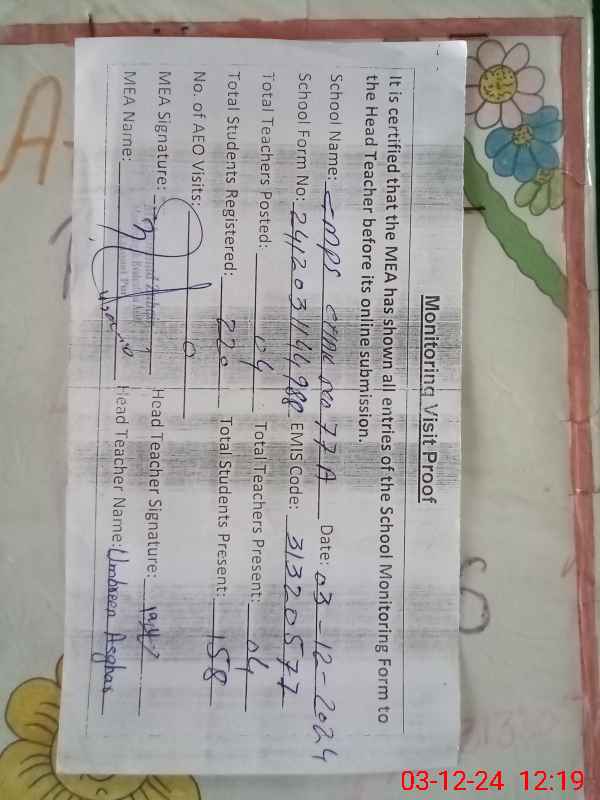 Monitoring Visit Proof
It is certified that the MEA has shown all entries of the School Monitoring Form to
the Head Teacher before its online submission.
School Name: GMPS CHAK NO 77 A Date: 03-12-2024
School Form No: EMIS Code: 31320577
Total Teachers Posted: 04 Total Teachers Present: 04
Total Students Registered: 220 Total Students Present: 158
No. of AEO Visits: 0
MEA Signature: Head Teacher Signature:
MEA Name: Head Teacher Name: Umbreen Asghar
A
03-12-24 12:19